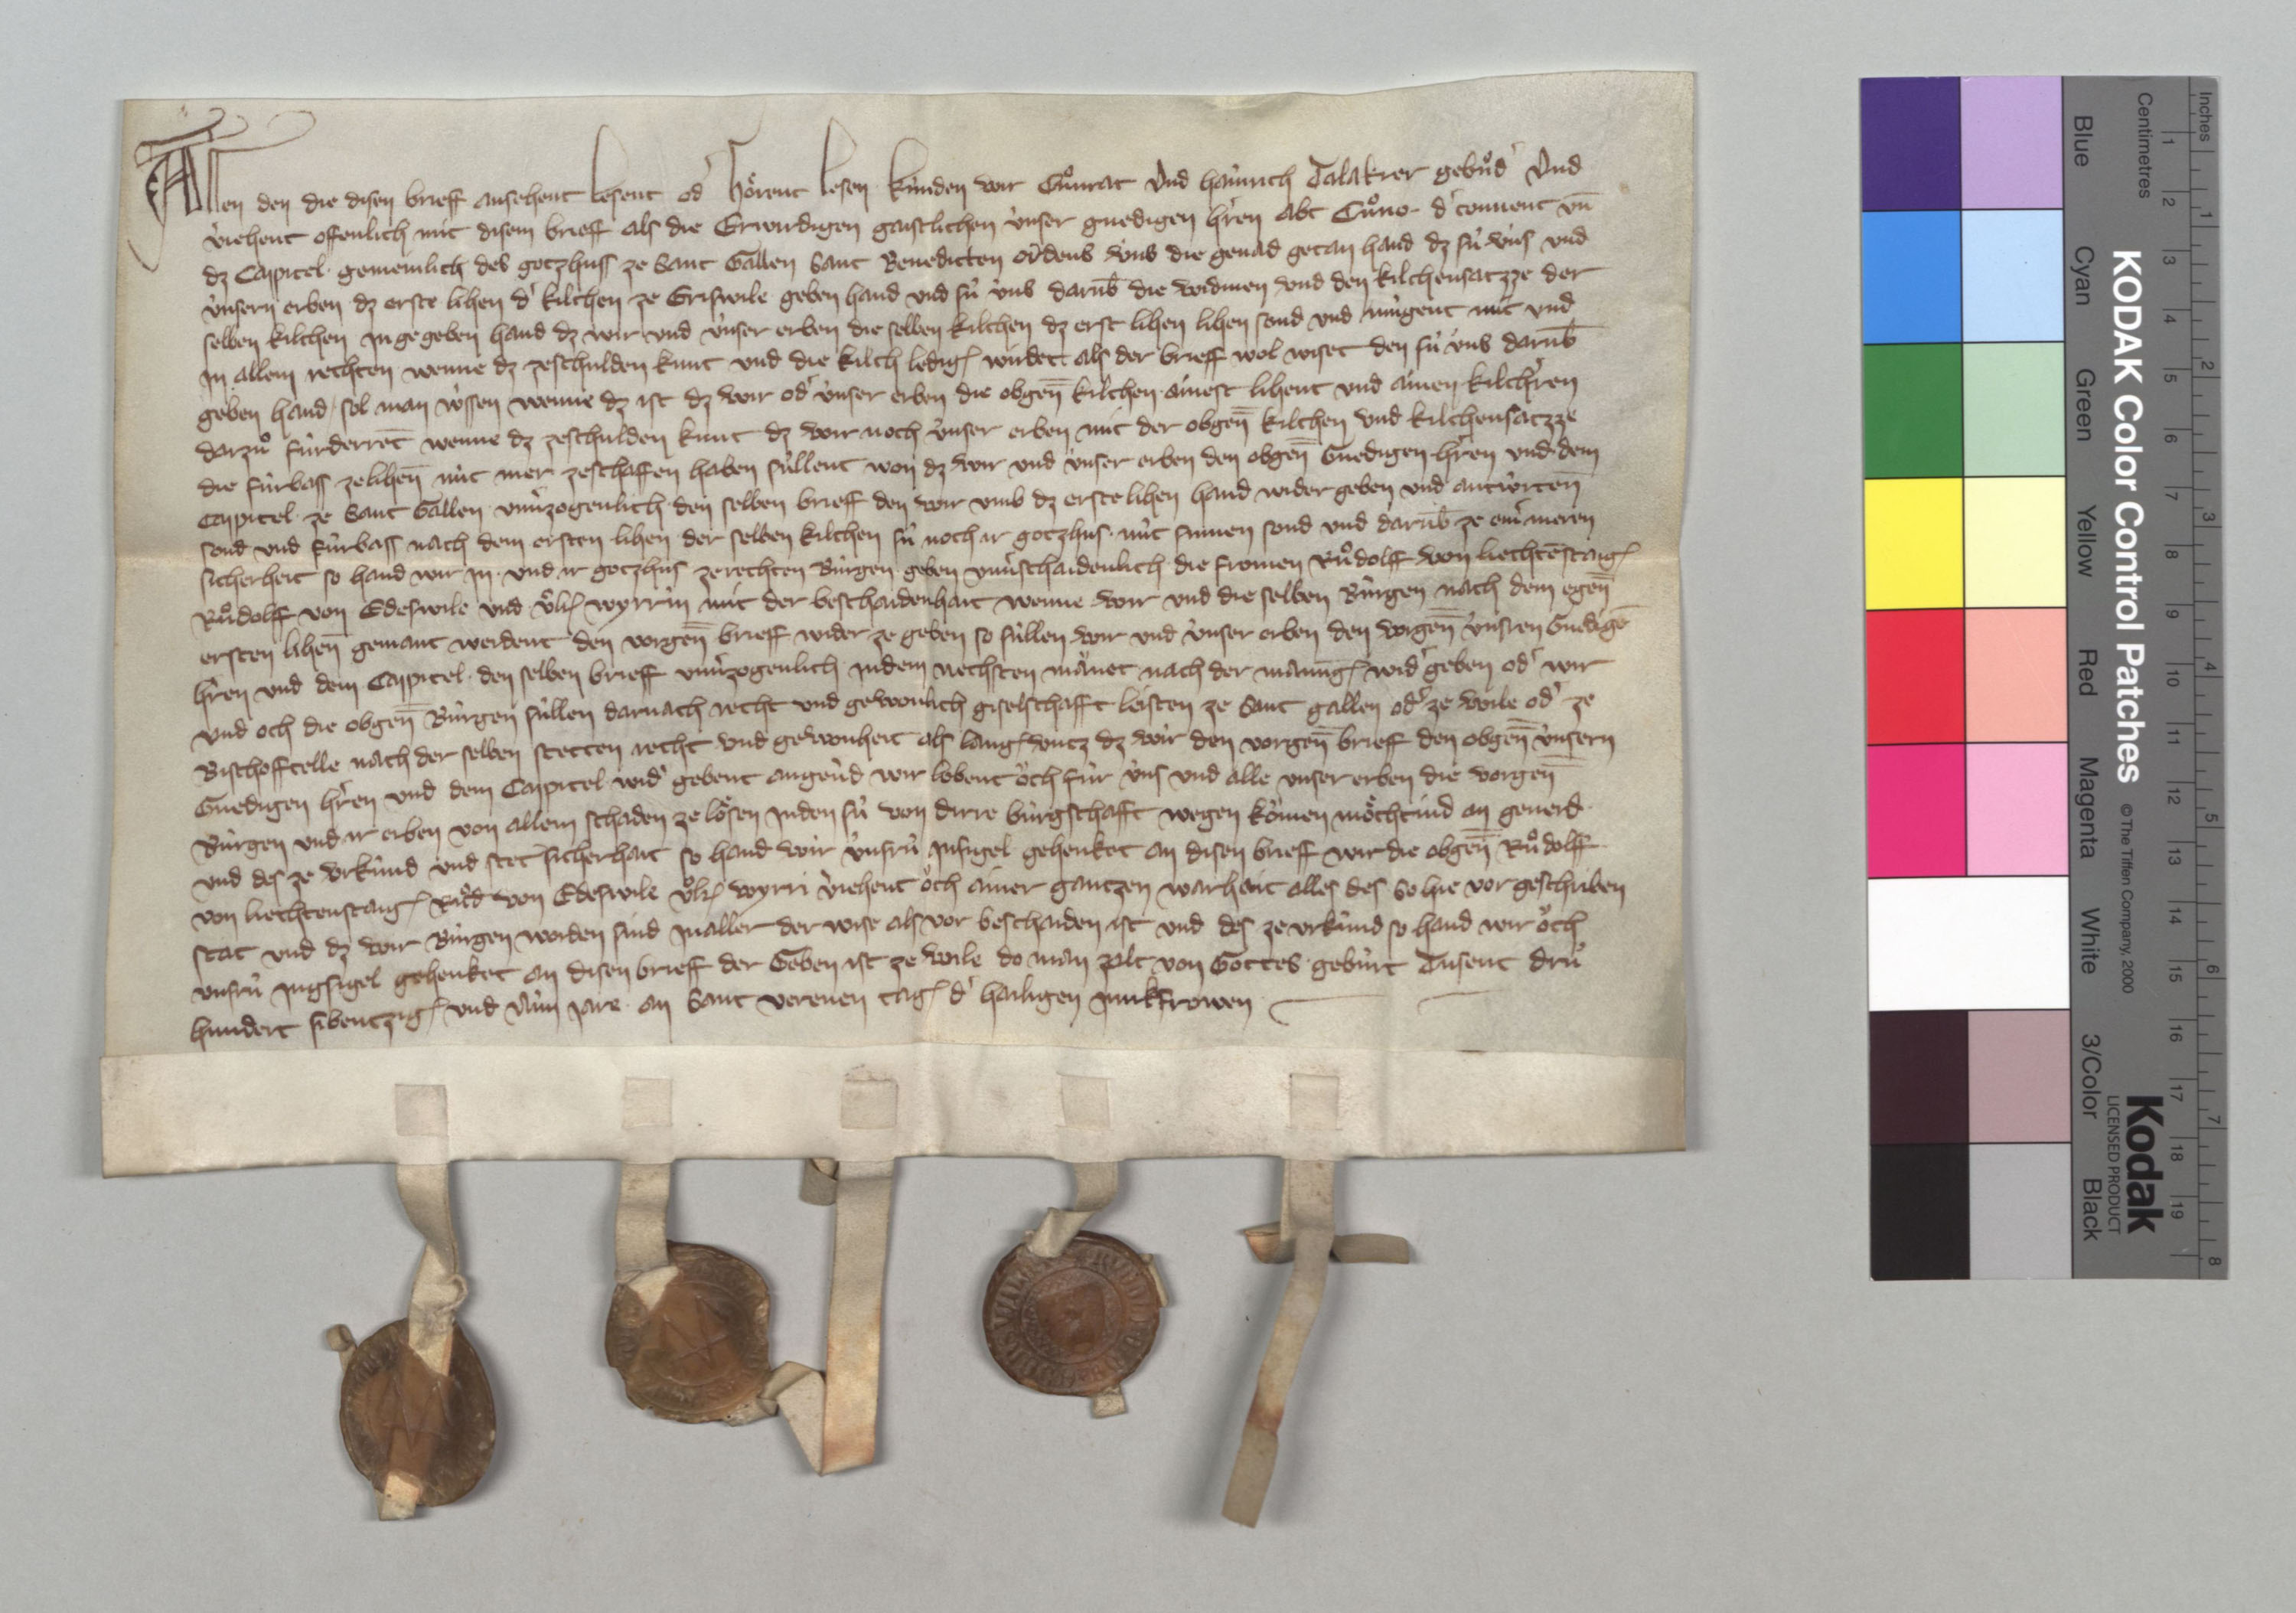 Allen den die disen brieff ansehent lesent od' hoͤrent lesen kúnden wir Cuͦnrat Vnd hainrich Talakrer gebruͦd' Vnd
v'iehent offenlich mit disem brieff als die Erwirdigen gaistlichen v́nser gnedigen h'ren abt Cuͦno d' conuent vn̄
dz Cappitel gemeinlich des gotzhuss ze Sant Gallen Sant Benedicten ordens v́ns die genad getan hand dz sú v́ns vnd
v́nsern erben dz erste lihen d' kilchen ze Griswile geben hand vnd sú v́ns darub̄ die widmen vnd den kilchensatzze der
selben kilchen in gegeben hand dz wir vnd v́nser erben die selben kilchen dz erst lihen lihen sond vnd múgent mit vnd
in allem rechten wenne dz zeschulden kunt vnd die kilch ledig wirdet als der brieff wol wiset den sú v́ns darub̄
geben hand / sol man wissen wenne dz ist dz wir od' v́nser erben die obgen̄ kilchen ainest lihent vnd ainen kilch'ren
darzuͦ fúrderrent wenne dz zeschulden kunt dz wir noch v́nser erben mit der obgen̄ kilchen vnd kilchensatzze
die fúrbass zelihen̄ nút mer zeschaffen haben súllent won dz wir vnd v́nser erben den obgen̄ Gnedigen h'ren vnd dem
Cappitel ze Sant Gallen vnu'zogenlich den selben brieff den wir vmb dz erste lihen hand wider geben vnd antwrten̄
sond vnd fúrbass nach dem ersten lihen der selben kilchen sú noch ir gotzhus nút sumen sond vnd darub̄ ze ain' meren
sicherheit so hand wir in vnd ir gotzhus ze rechten Búrgen geben vnu'schaidenlich die fromen Ruͦdolff von liechtēstaig
Ruͦdolff von Edeswile vnd Vͦlr wyrrin mit der beschaidenhait wenne wir vnd die selben Búrgen nach dem egen̄
ersten lihen̄ gemant werdent den vorgen̄ brieff wider ze geben so súllen wir vnd v́nser erben den vorgen̄ v́nsren Gnedigē
h'ren vnd dem Cappitel den selben brieff vnu'zogenlich in dem nechsten mânet nach der manung wid' geben od' wir
vnd och die obgen̄ Búrgen súllen darnach recht vnd gewonlich giselschafft leisten ze Sant gallen od' ze wile od' ze
Bischoffcelle nach der selben stetten recht vnd gewonheit als lang vntz dz wir den vorgen̄ brieff den obgen̄ v́nsern
Gnedigen h'ren vnd dem Cappitel wid' gebent angeu'd wir lobent oͮch fúr v́ns vnd alle vnser erben die vorgen̄
Búrgen vnd ir erben von allem schaden ze loͤsen in den sú von dirre búrgschafft wegen komen moͤchtind an geuerd
vnd des ze vrkúnd vnd stet sicherhait so hand wir v́nsrú insigel gehenket an disen brieff wir die obgen̄ Ruͦdolff
von liechtenstaig Ruͦd von Edeswile Vͦlr wyrri v'iehent oͮch ainer gantzen warheit alles des so hie vor geschriben
stat vnd dz wir Búrgen worden sind in aller der wise als vor beschaiden ist vnd des ze vrkúnd so hand wir oͮch
vnsrú ingsigel gehenket an disen brieff der Geben ist ze wile do man zalt von Gottes gebúrt Tusent drú
hundert sibentzig vnd Nún jare an Sant verenen tag d' hailigen junkfrowen
Inches
Centimetres
1 2 3 4 5 6 7 8 9 10 11 12 13 14 15 16 17 18 19
1 2 3 4 5 6 7 8
KODAK Color Control Patches © The Tiffen Company, 2000
Kodak
LICENSED PRODUCT
Blue Cyan Green Yellow Red Magenta White 3/Color Black